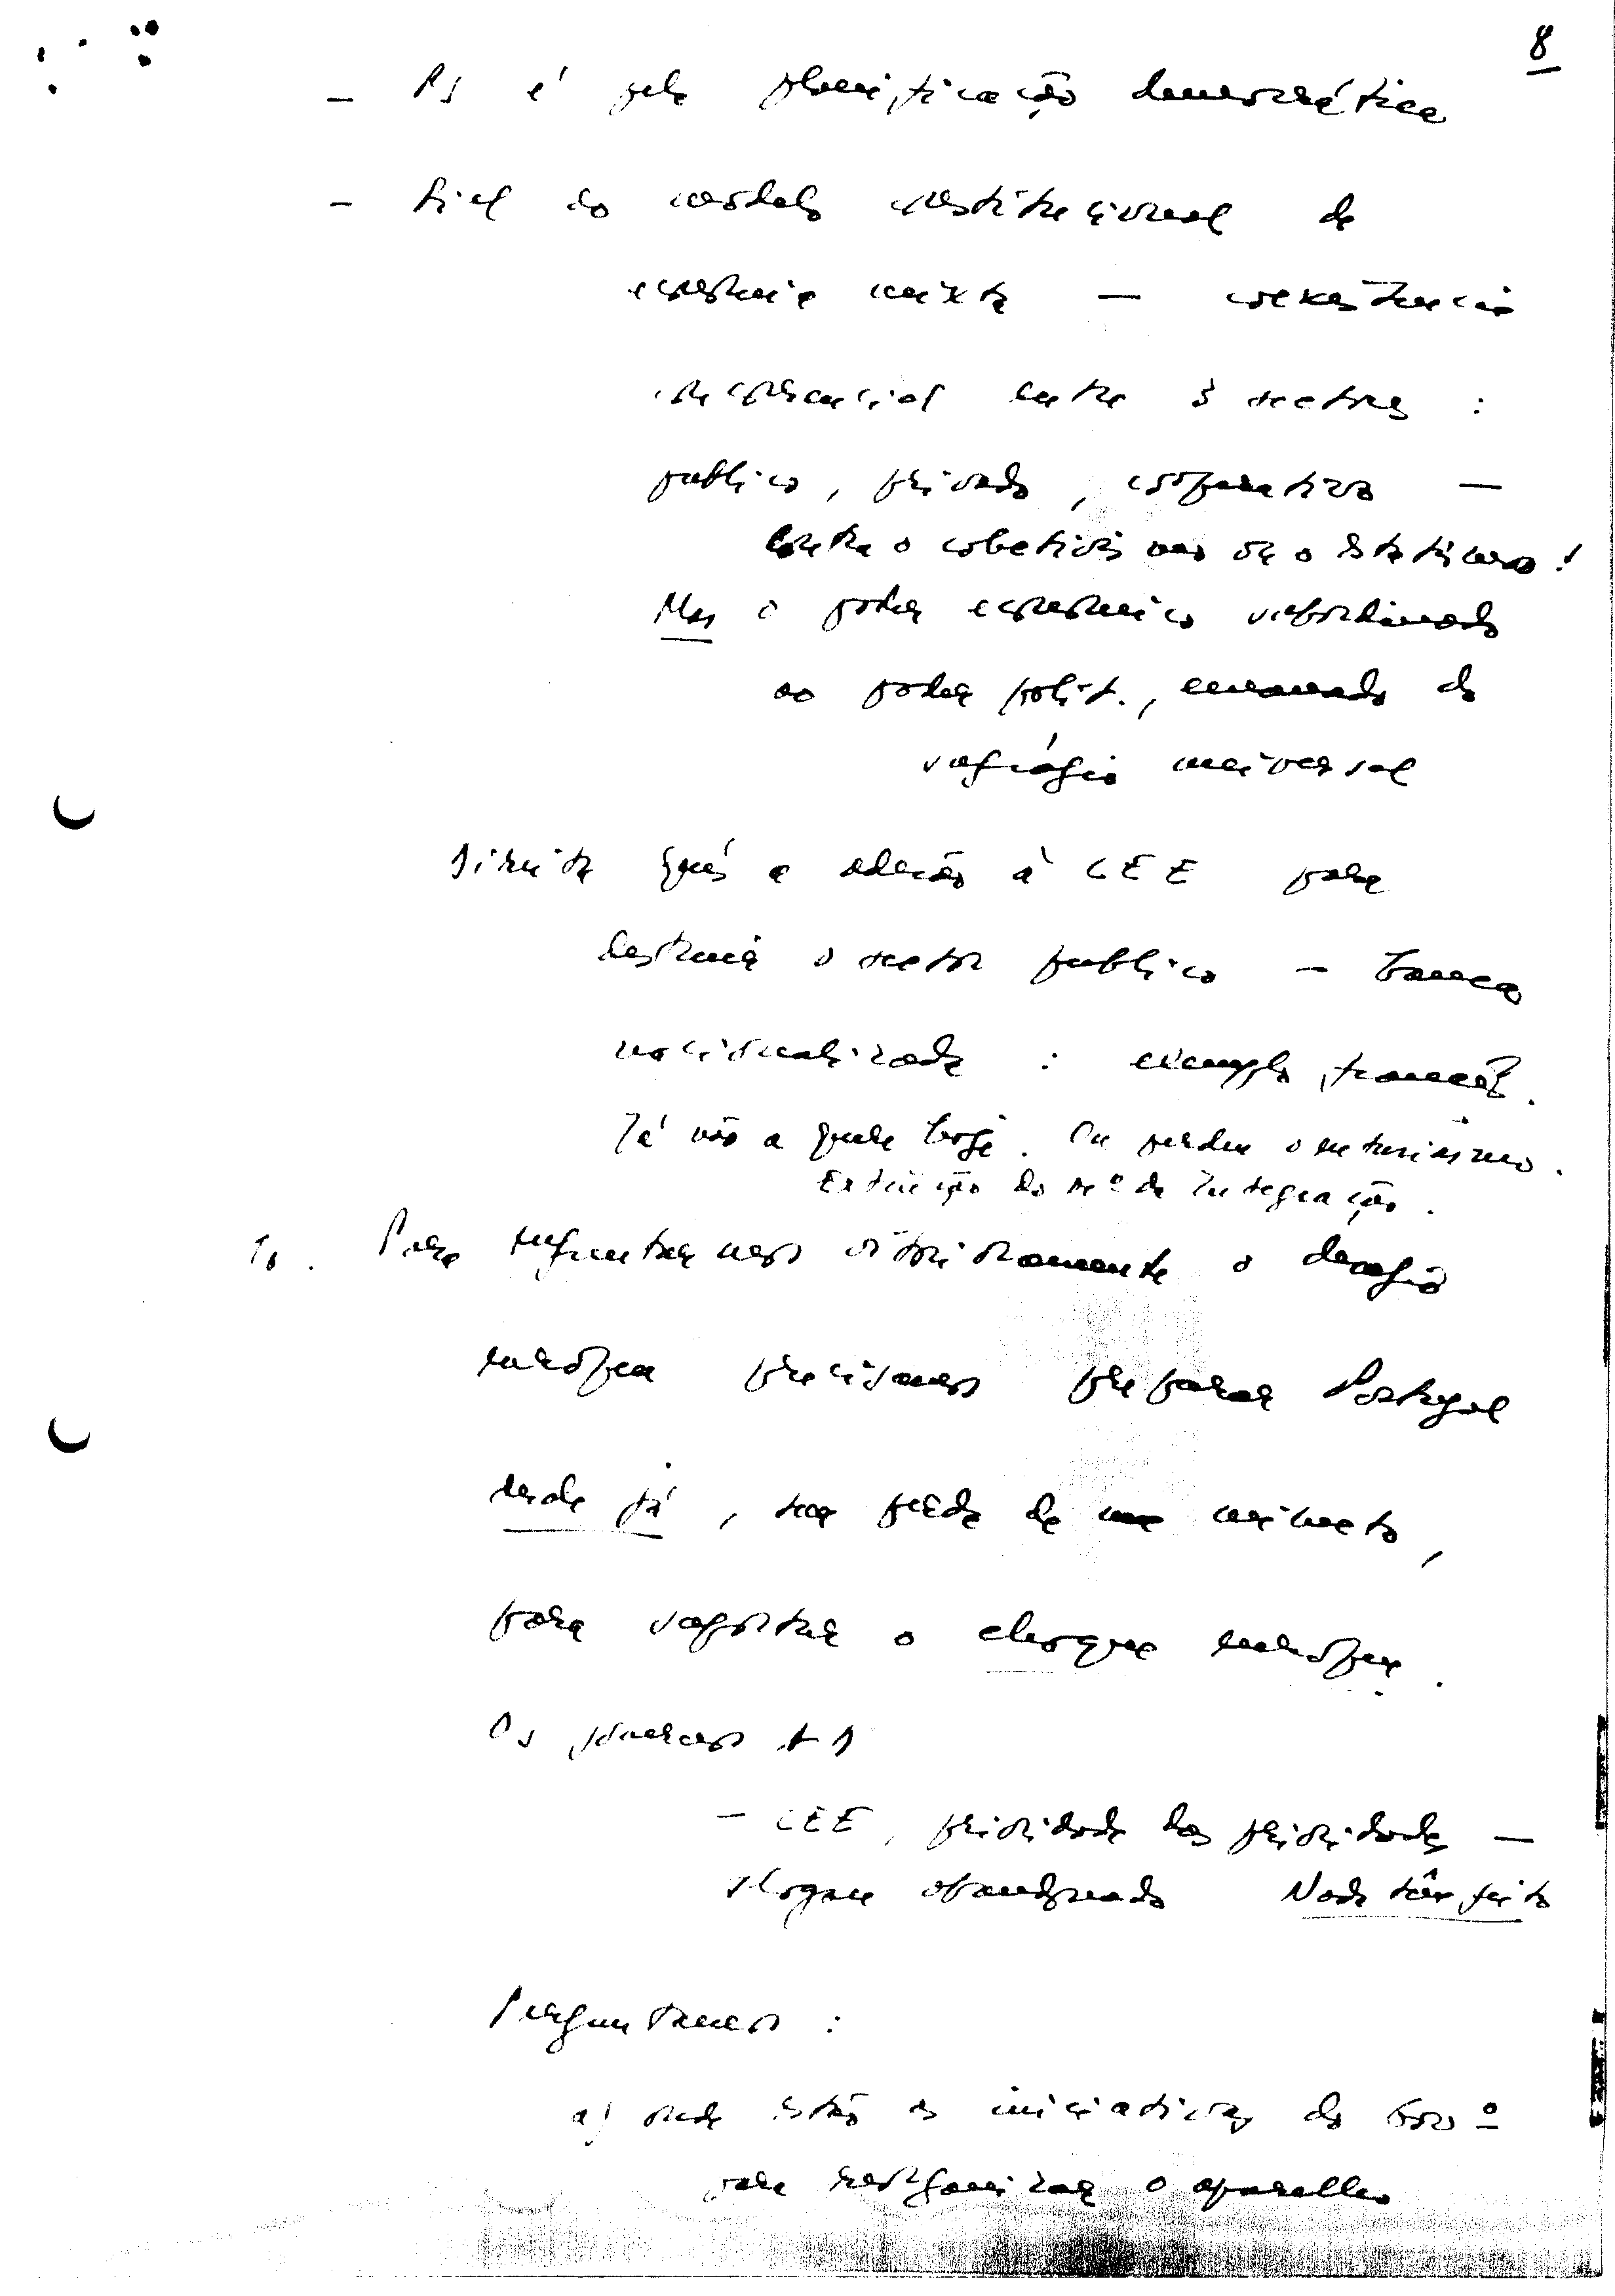 8
- PS é pela planificação democrática
- Fiel ao modelo constitucional de
economia mixta — coexistência
concorrencial entre 3 sectores :
publico, privado, cooperativo —
contra o colectivismo ou o Estatismo !
Mas o poder economico subordinado
ao poder polit., emanado do
sufrágio universal
Direita quis a adesão à CEE para
destruir o sector publico - banca
nacionalizada : exemplo francês.
Já não a quer hoje. Ou perdeu o entusiasmo.
Extinção do Mº da Integração.
10. Para enfrentarmos vitoriosamente o desafio
europeu precisamos preparar Portugal
desde já, sem perda de um minuto,
para suportar o choque europeu.
Os governos AD
- CEE, prioridade das prioridades —
slogan abandonado Nada têm feito
Perguntamos :
a) onde estão as iniciativas do Govº
para reorganizar o aparelho